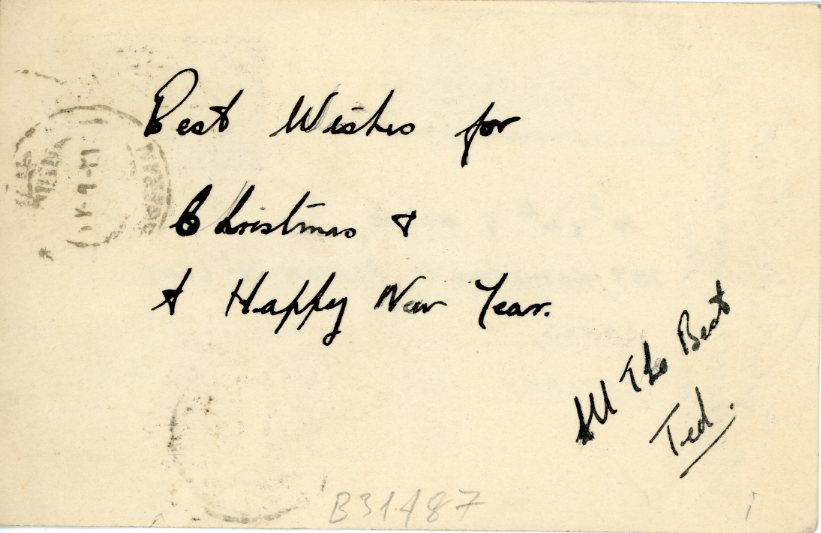 Best Wishes for
Christmas &
A Happy New Year.
All The Best
Ted.
B31487